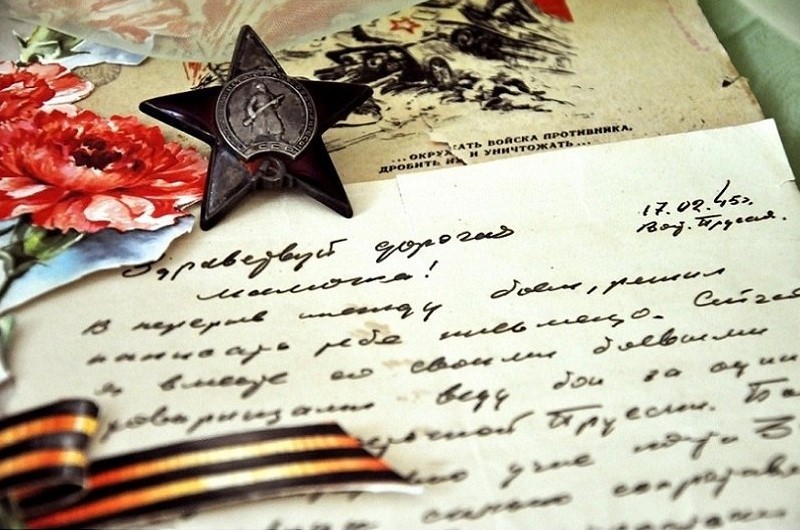 ...ОКРУЖАТЬ ВОЙСКА ПРОТИВНИКА,
ДРОБИТЬ ИХ И УНИЧТОЖАТЬ...
17.02.45г.
Вост. Пруссия.
Здравствуй дорогая
мамаша!
В перерыв между боем, решил
написать тебе письмецо. Сейчас
я вместе со своими боевыми
товарищами веду бои за один
Пруссии.
уже
сильно
СССР